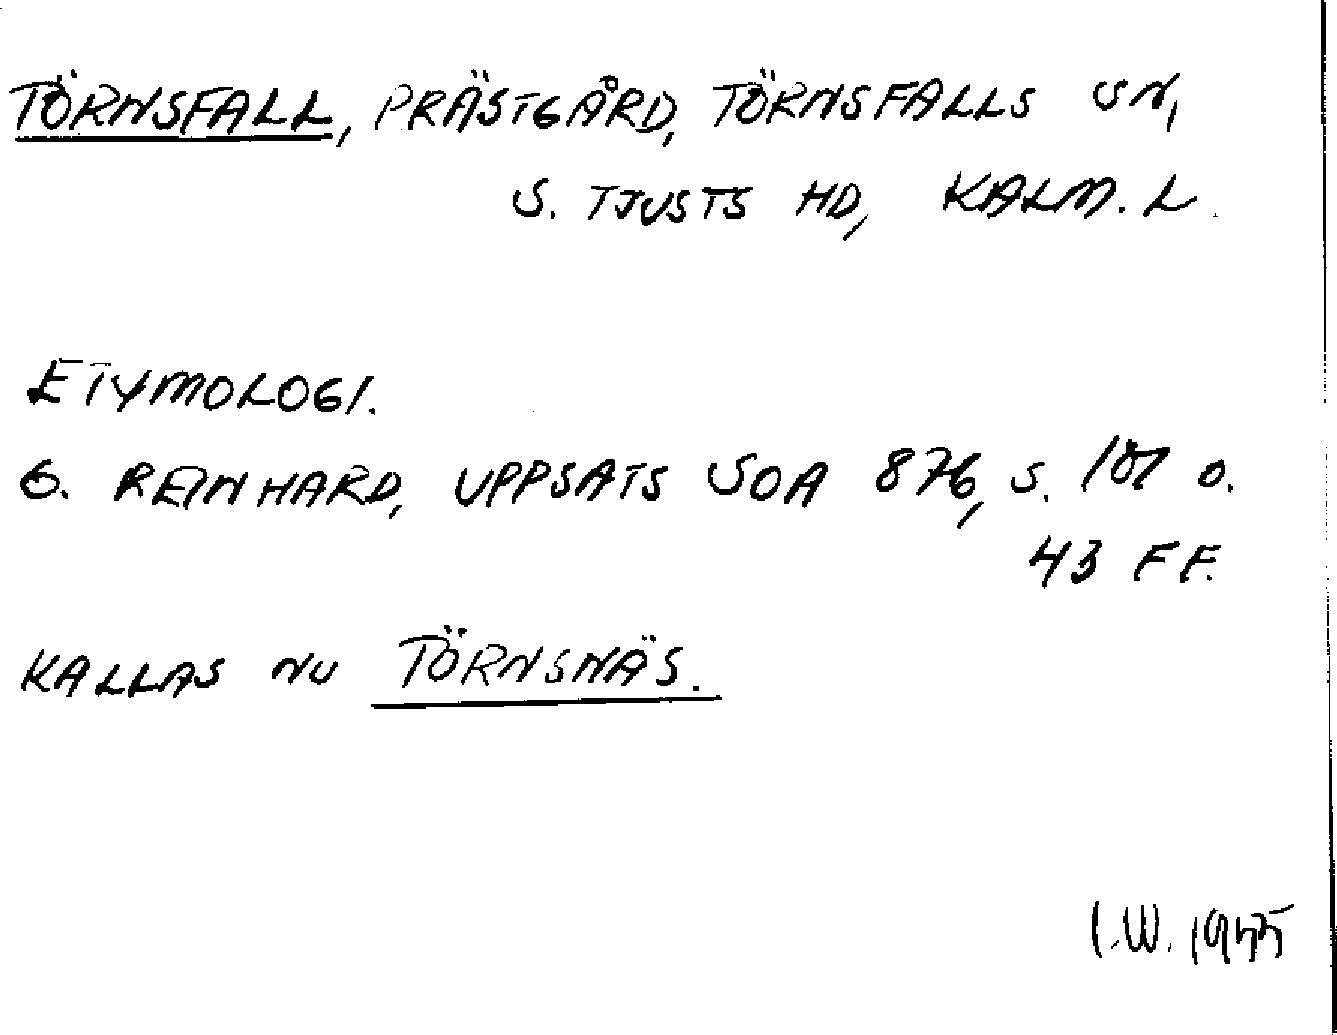 TÖRNSFALL, PRÄSTGÅRD, TÖRNSFALLS SN,
S. TJUSTS HD, KALM. L.
ETYMOLOGI.
G. REINHARD, UPPSATS SOA 876, S. O.
43 FF.
KALLAS NU TÖRNSNÄS.
I.W. 1955